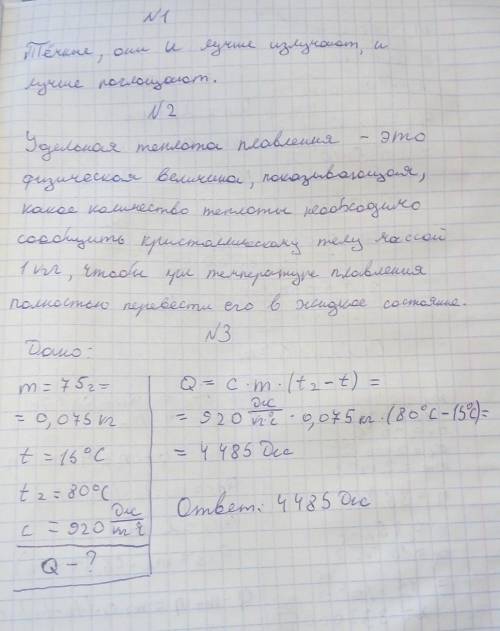 N1
Тёмные, они и лучше излучают, и
лучше поглощают.
N2
Удельная теплота плавления - это
физическая величина, показывающая,
какое количество теплоты необходимо
сообщить кристаллическому телу массой
1 кг, чтобы при температуре плавления
полностью перевести его в жидкое состояние.
N3
Дано:
m = 75г =
= 0,075 кг
t = 15°C
t2 = 80°C
c = 920 Дж/m°C
Q - ?
Q = c · m · (t2 - t) =
= 920 Дж/кг°C · 0,075 кг · (80°C - 15°C) =
= 4 485 Дж
Ответ: 4 485 Дж